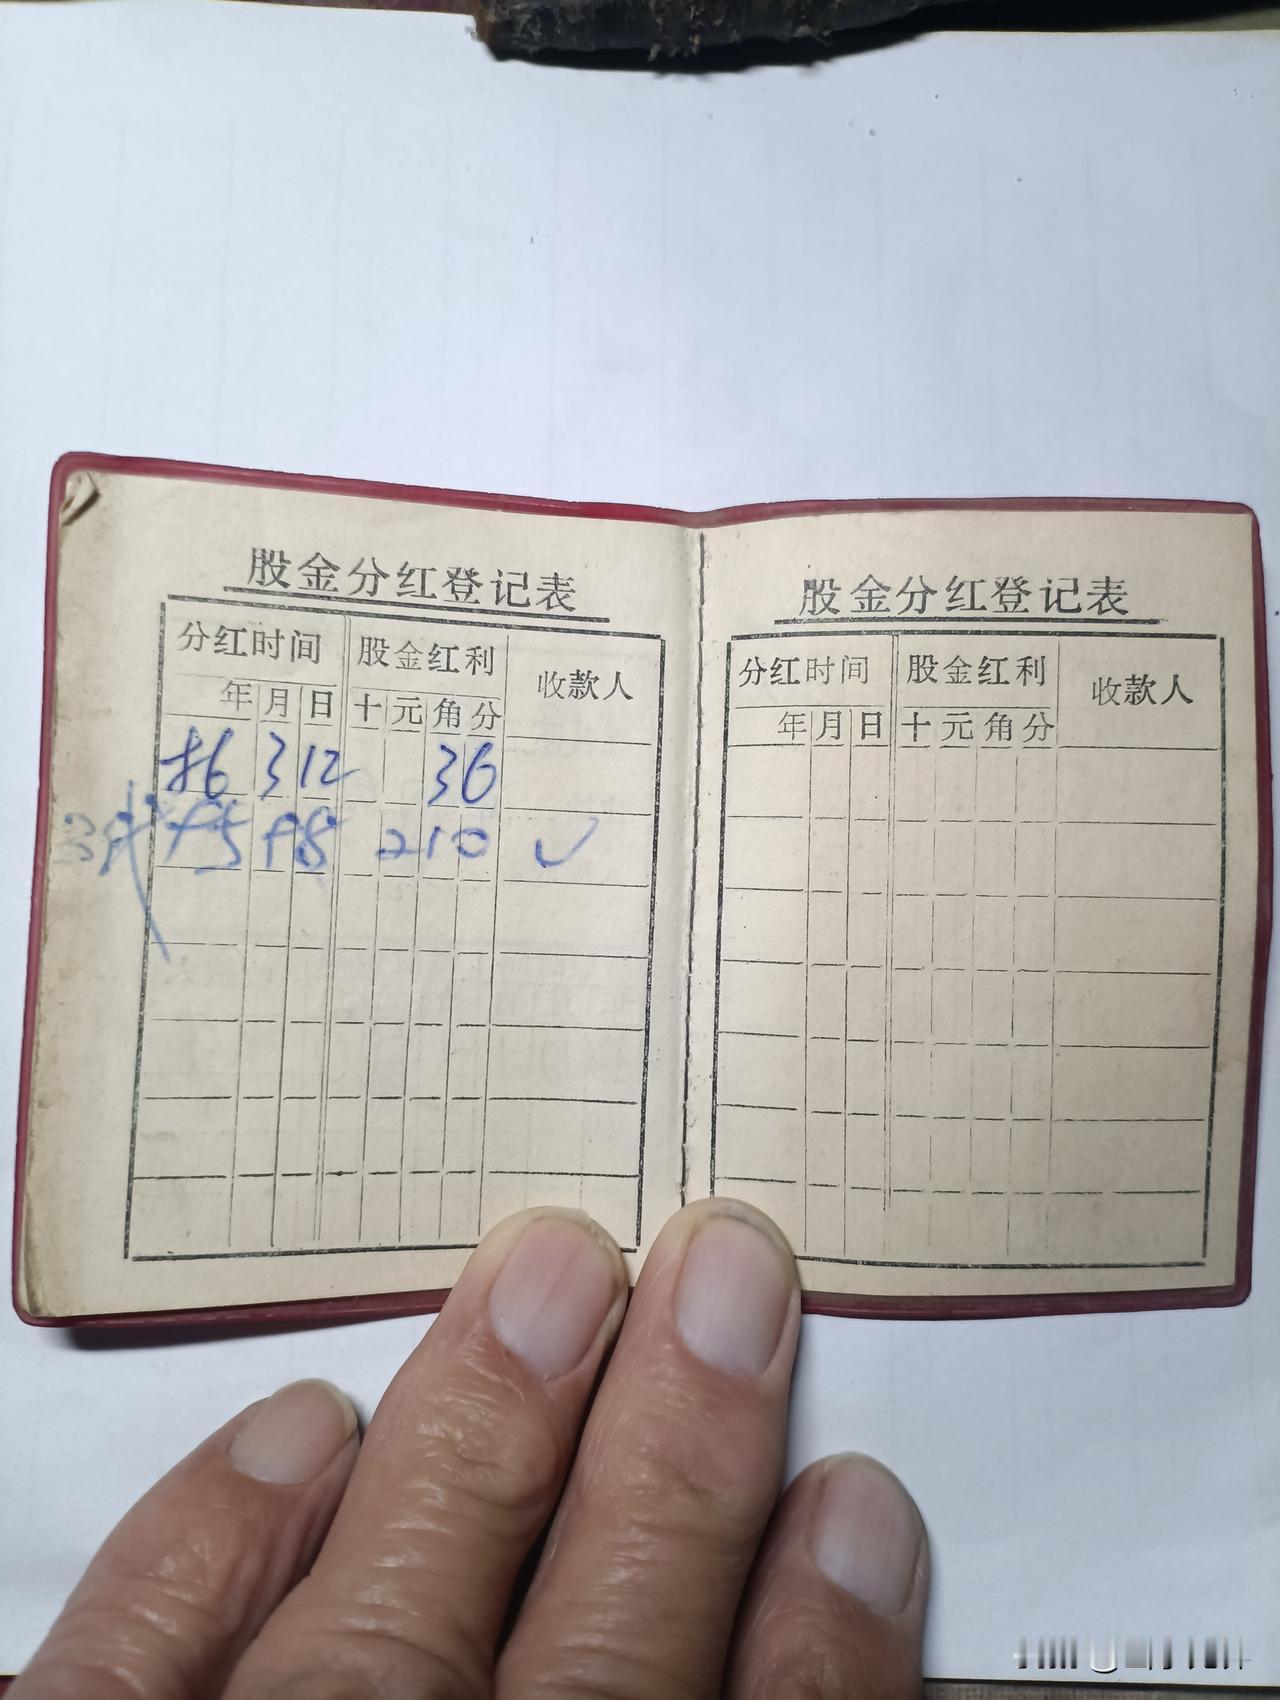 股金分红登记表
分红时间 股金红利 收款人
年 月 日 十 元 角 分
3 12 36
210 ✓
股金分红登记表
分红时间 股金红利 收款人
年 月 日 十 元 角 分